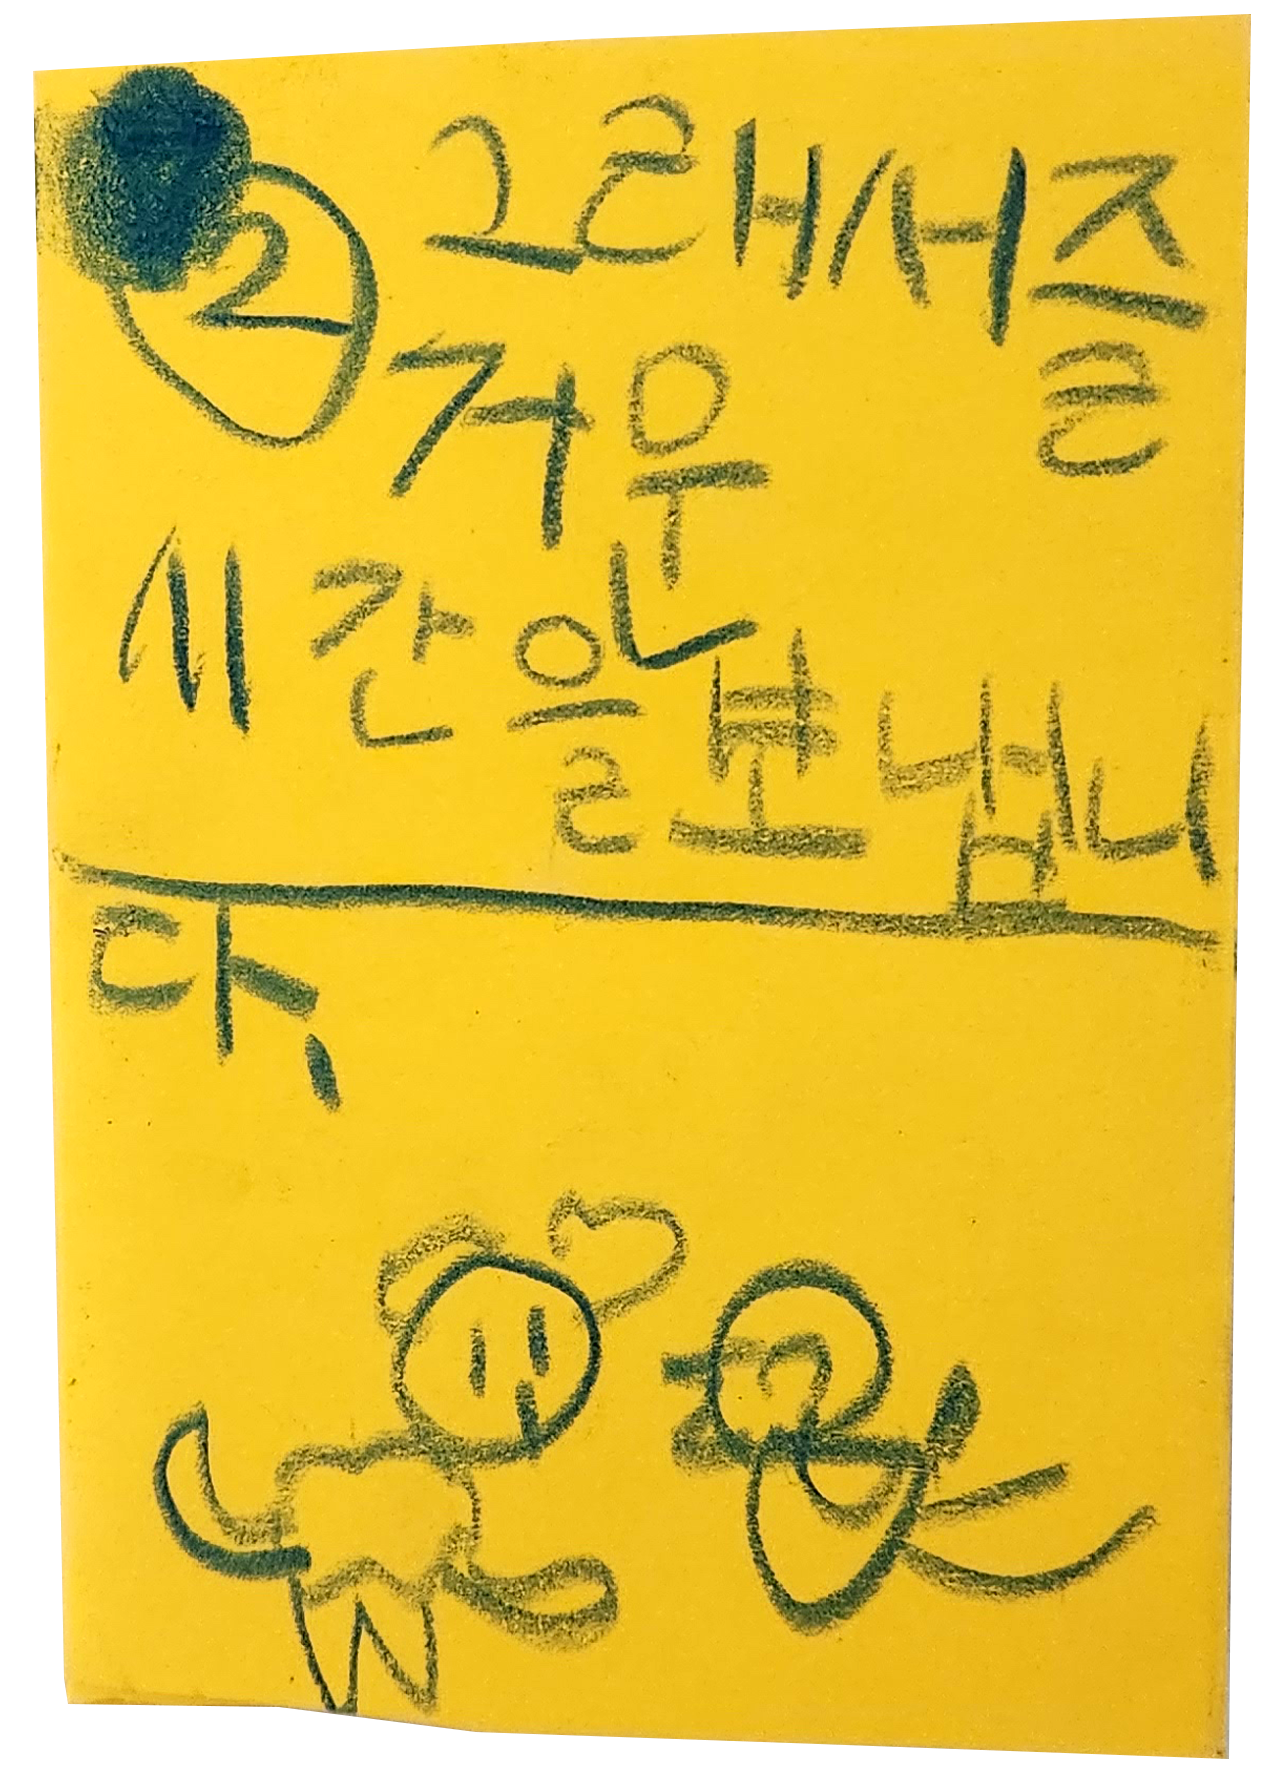 ② 그래서즐
거운
시간을보냅니
다,